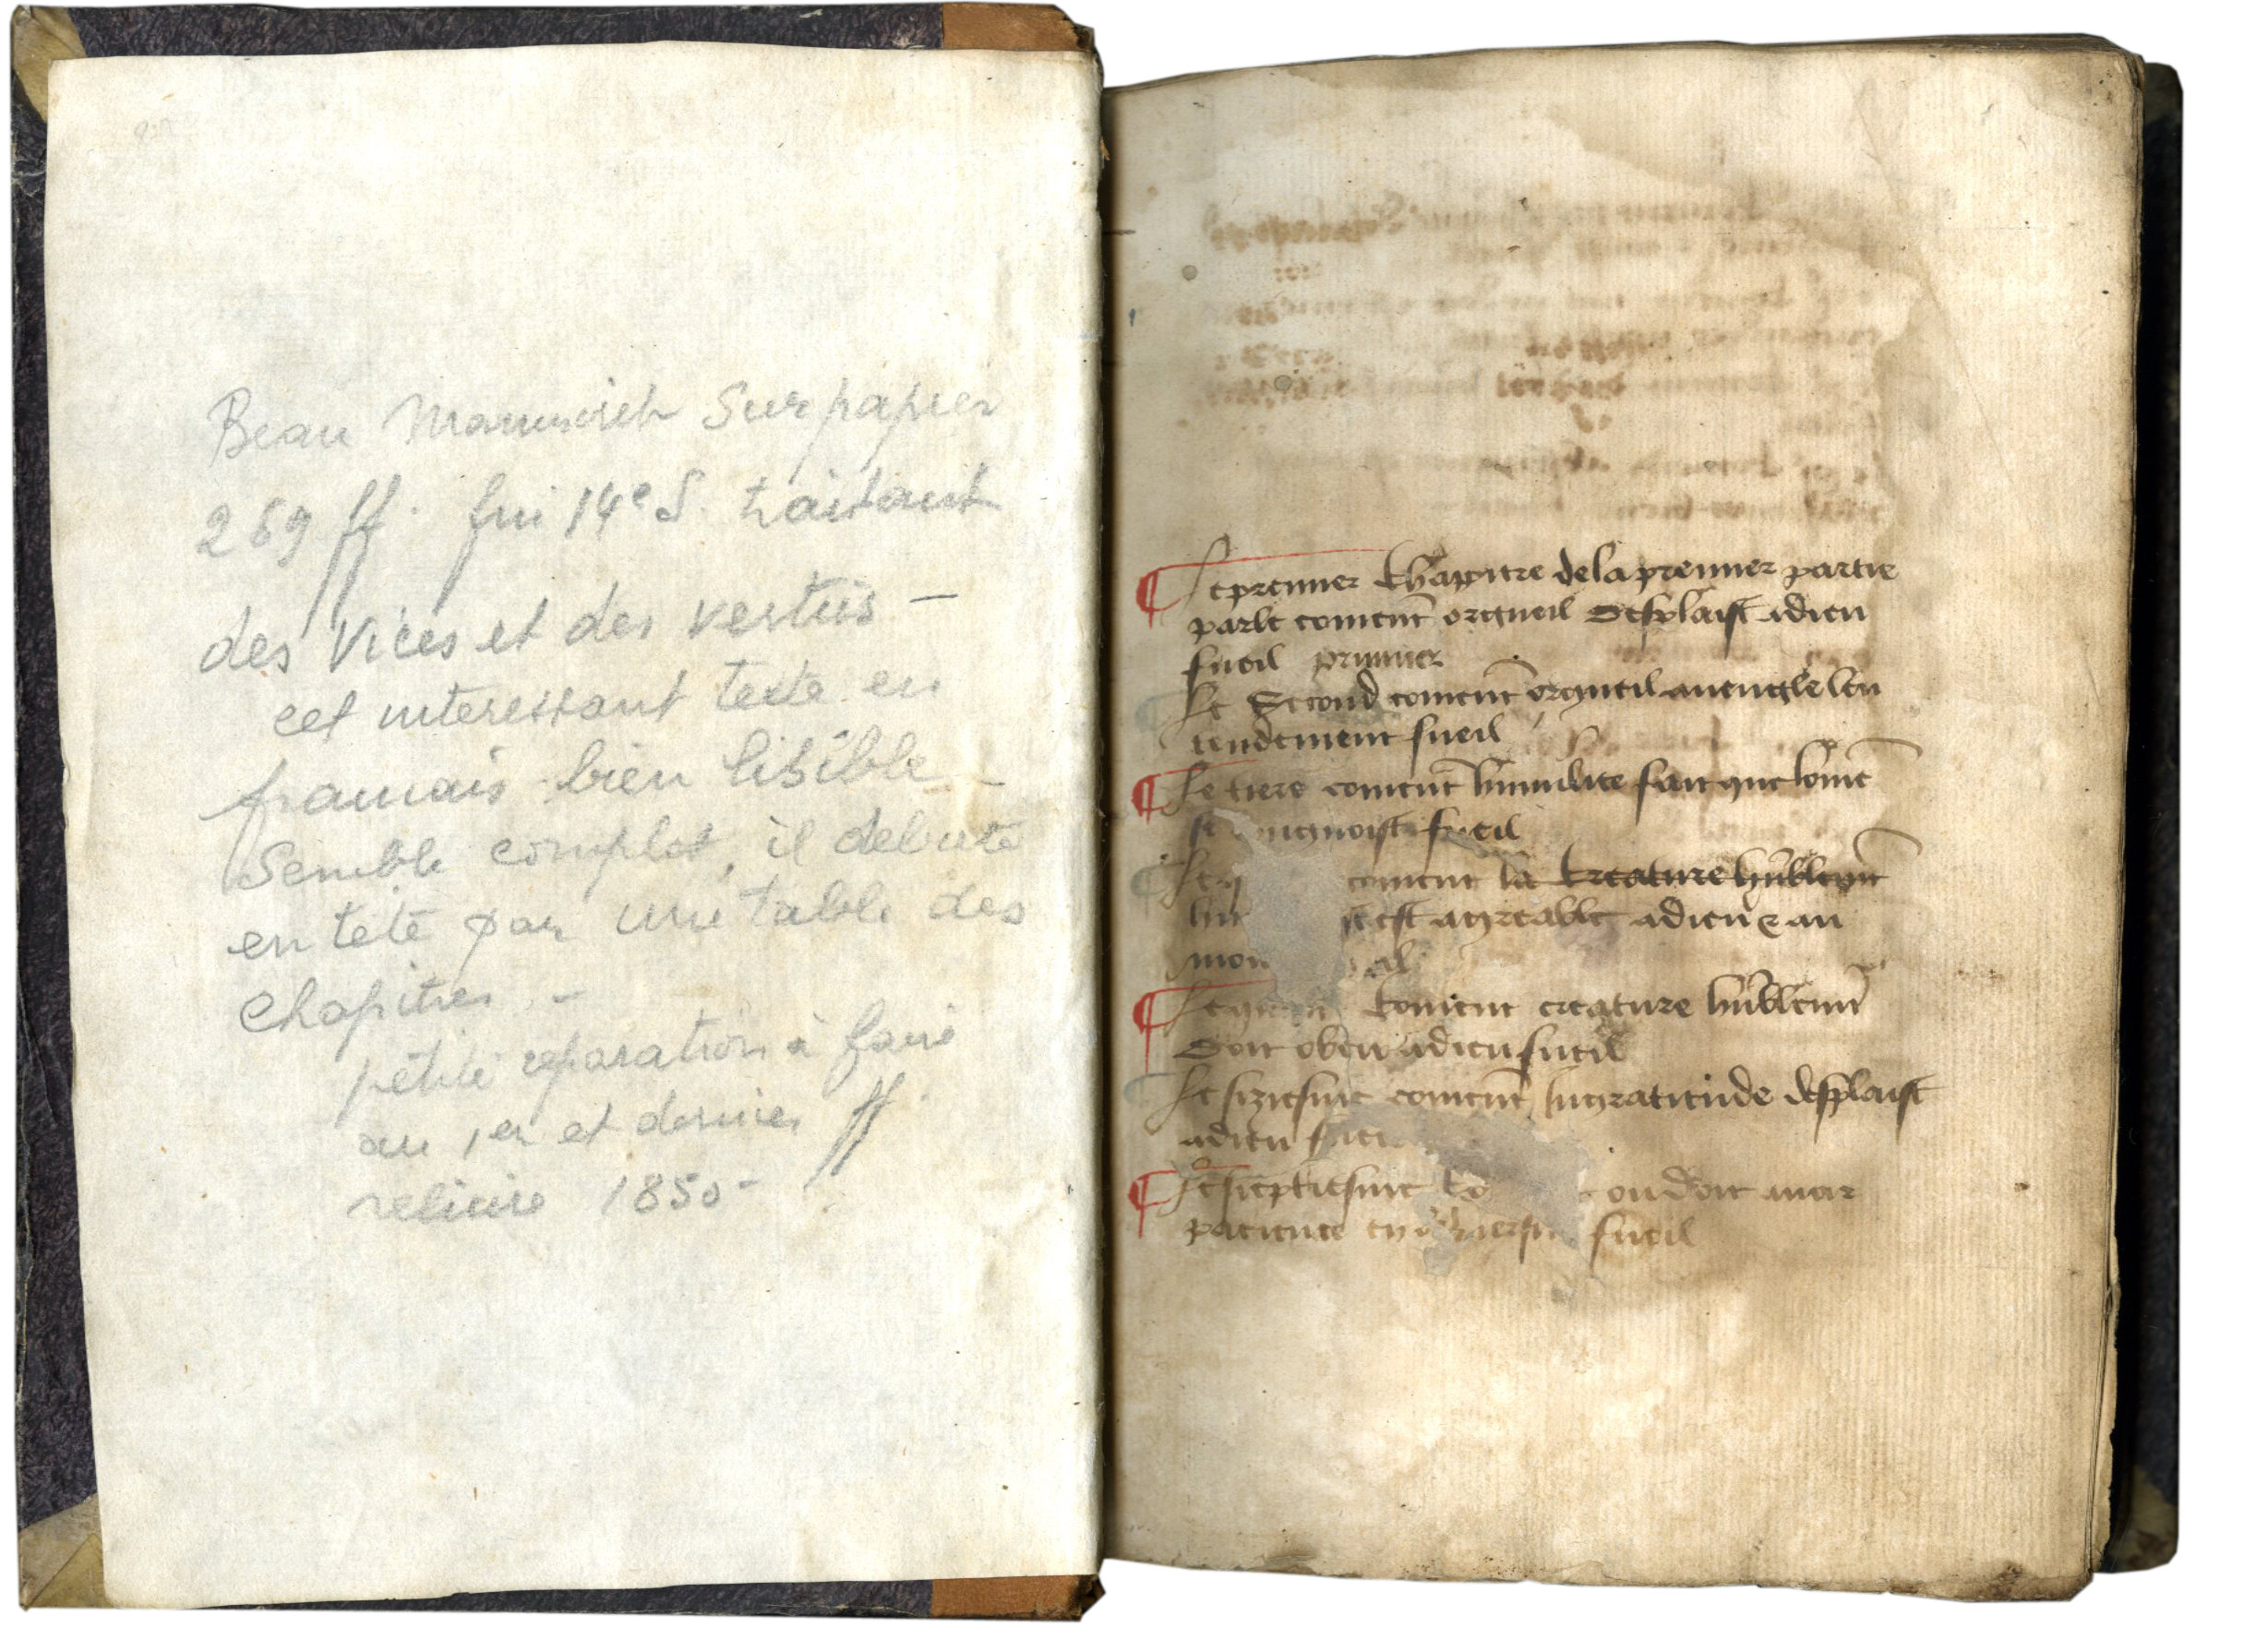 Beau Manuscrit sur papier
269 ff. fin 14e S. traitant
des Vices et des vertus –
cet interessant texte en
francais bien lisible –
Semble complet, il debute
en tete par une table des
chapitres –
petite reparation à faire
au 1er et dernier ff.
reliure 1850 –
Le premier chapitre de la premier partie
parle coment orgueil desplaist a dieu
fueil primier
Le Second coment orgueil aueugle len
tendement fueil
Le tiers coment humilite fait que lome
se fueil
coment la creature
est agreable a dieu & au
mon
coment creature
doit obeir a dieu fueil
Le siziesme coment Ingratitude desplaist
a dieu
Le sieptiesme on doit auoir
patience fueil